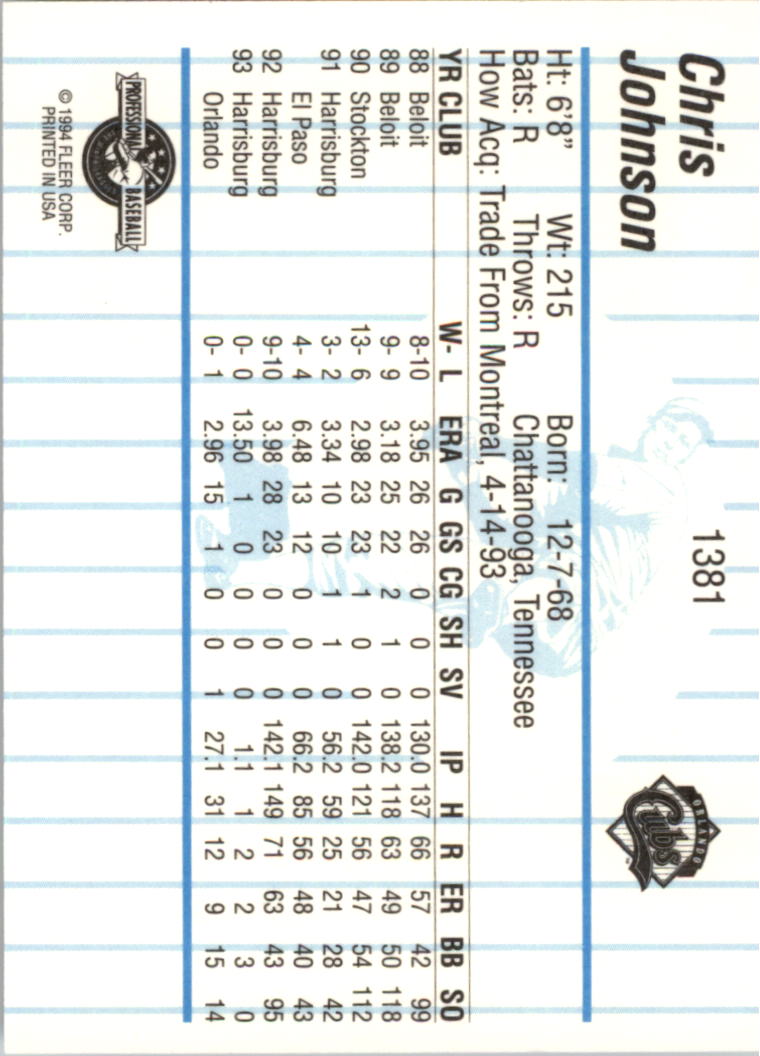 Chris
Johnson
1381
ORLANDO
Cubs
Ht: 6'8" Wt: 215 Born: 12-7-68
Bats: R Throws: R Chattanooga, Tennessee
How Acq: Trade From Montreal, 4-14-93
YR CLUB W- L ERA G GS CG SH SV IP H R ER BB SO
88 Beloit 8-10 3.95 26 26 0 0 0 130.0 137 66 57 42 99
89 Beloit 9- 9 3.18 25 22 2 1 0 138.2 118 63 49 50 118
90 Stockton 13- 6 2.98 23 23 1 0 0 142.0 121 56 47 54 112
91 Harrisburg 3- 2 3.34 10 10 1 1 0 56.2 59 25 21 28 42
El Paso 4- 4 6.48 13 12 0 0 0 66.2 85 56 48 40 43
92 Harrisburg 9-10 3.98 28 23 0 0 0 142.1 149 71 63 43 95
93 Harrisburg 0- 0 13.50 1 0 0 0 0 1.1 1 2 2 3 0
Orlando 0- 1 2.96 15 1 0 0 1 27.1 31 12 9 15 14
PROFESSIONAL BASEBALL
© 1994 FLEER CORP.
PRINTED IN USA